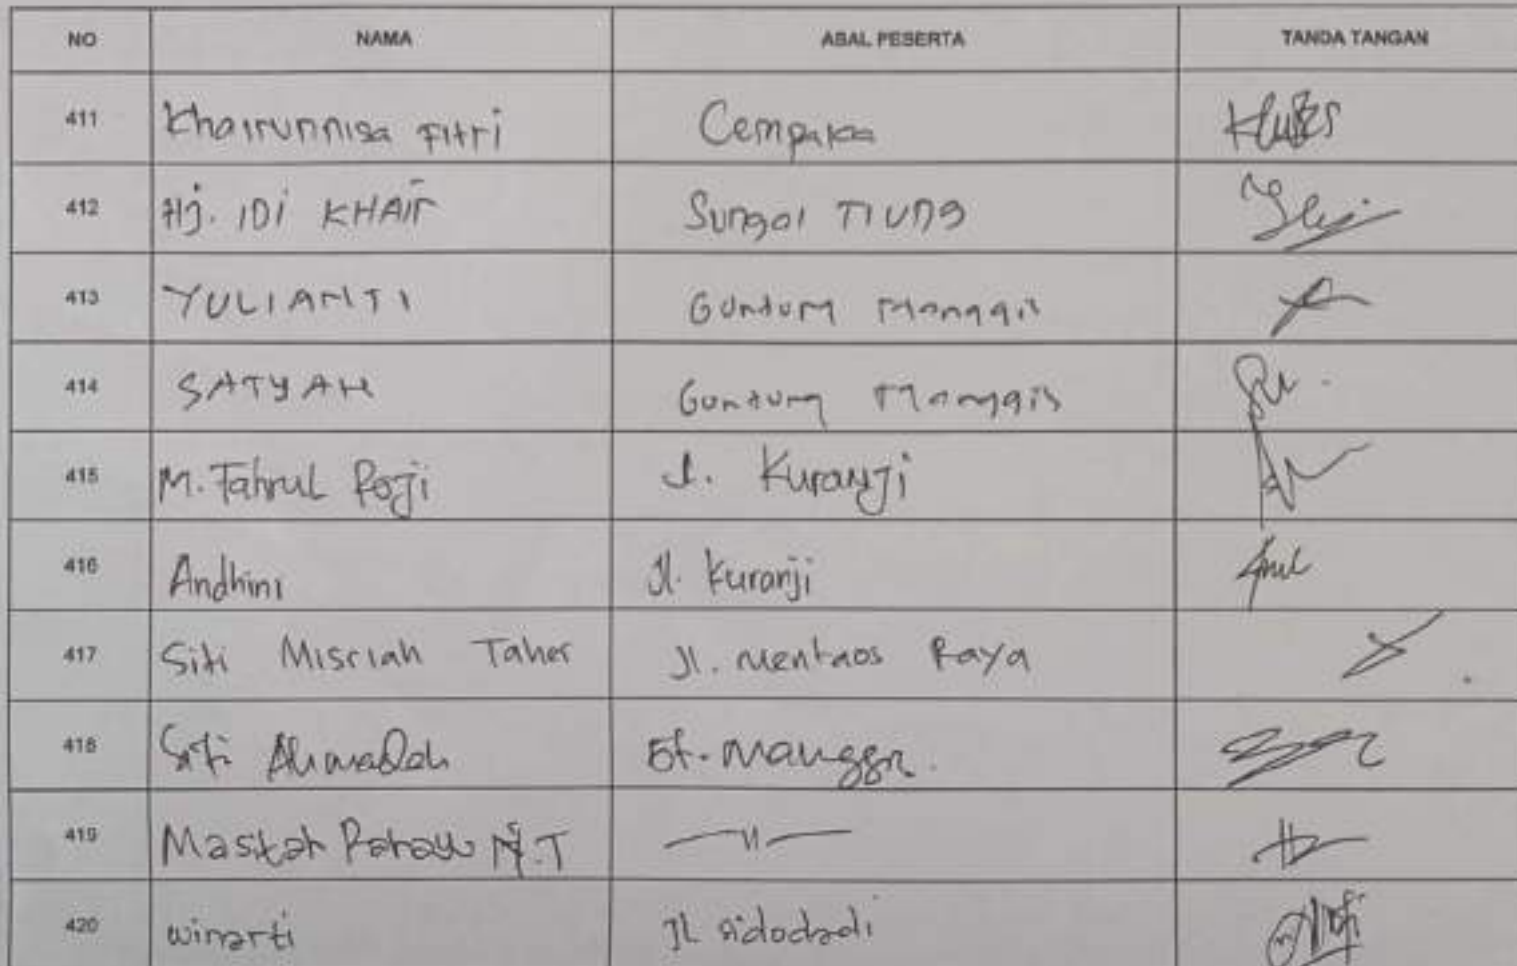 NO NAMA ASAL PESERTA TANDA TANGAN
411 Khairunnisa Fitri Cempaka
412 Hj. IDI KHAIR Sungai Tiung
413 YULIANTI Guntung Manggis
414 SATYAH Guntung Manggis
415 M. Fahrul Roji Jl. Kuranji
416 Andhini Jl. Kuranji
417 Siti Misriah Taher Jl. Mentaos Raya
418 Siti
419 N.T —11—
420 winarti Jl sidodadi